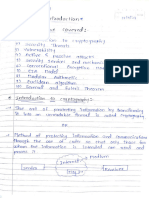 Introduction
Topics Covered:
Introduction to Cryptography
Security Threats
Vulnerability
Active & Passive attacks
Security services and mechanism
Conventional Encryption Model
CIA Model
Modular Arithmetic
Euclidean Algorithm
Fermat and Euler's Theorem
Introduction to Cryptography:
The art of protecting information by transforming
it into an unreadable format is called Cryptography
or
Method of protecting information and communications
through the use of codes so that only those for
whom the information is intended can read and
process it.
Internet
Medium